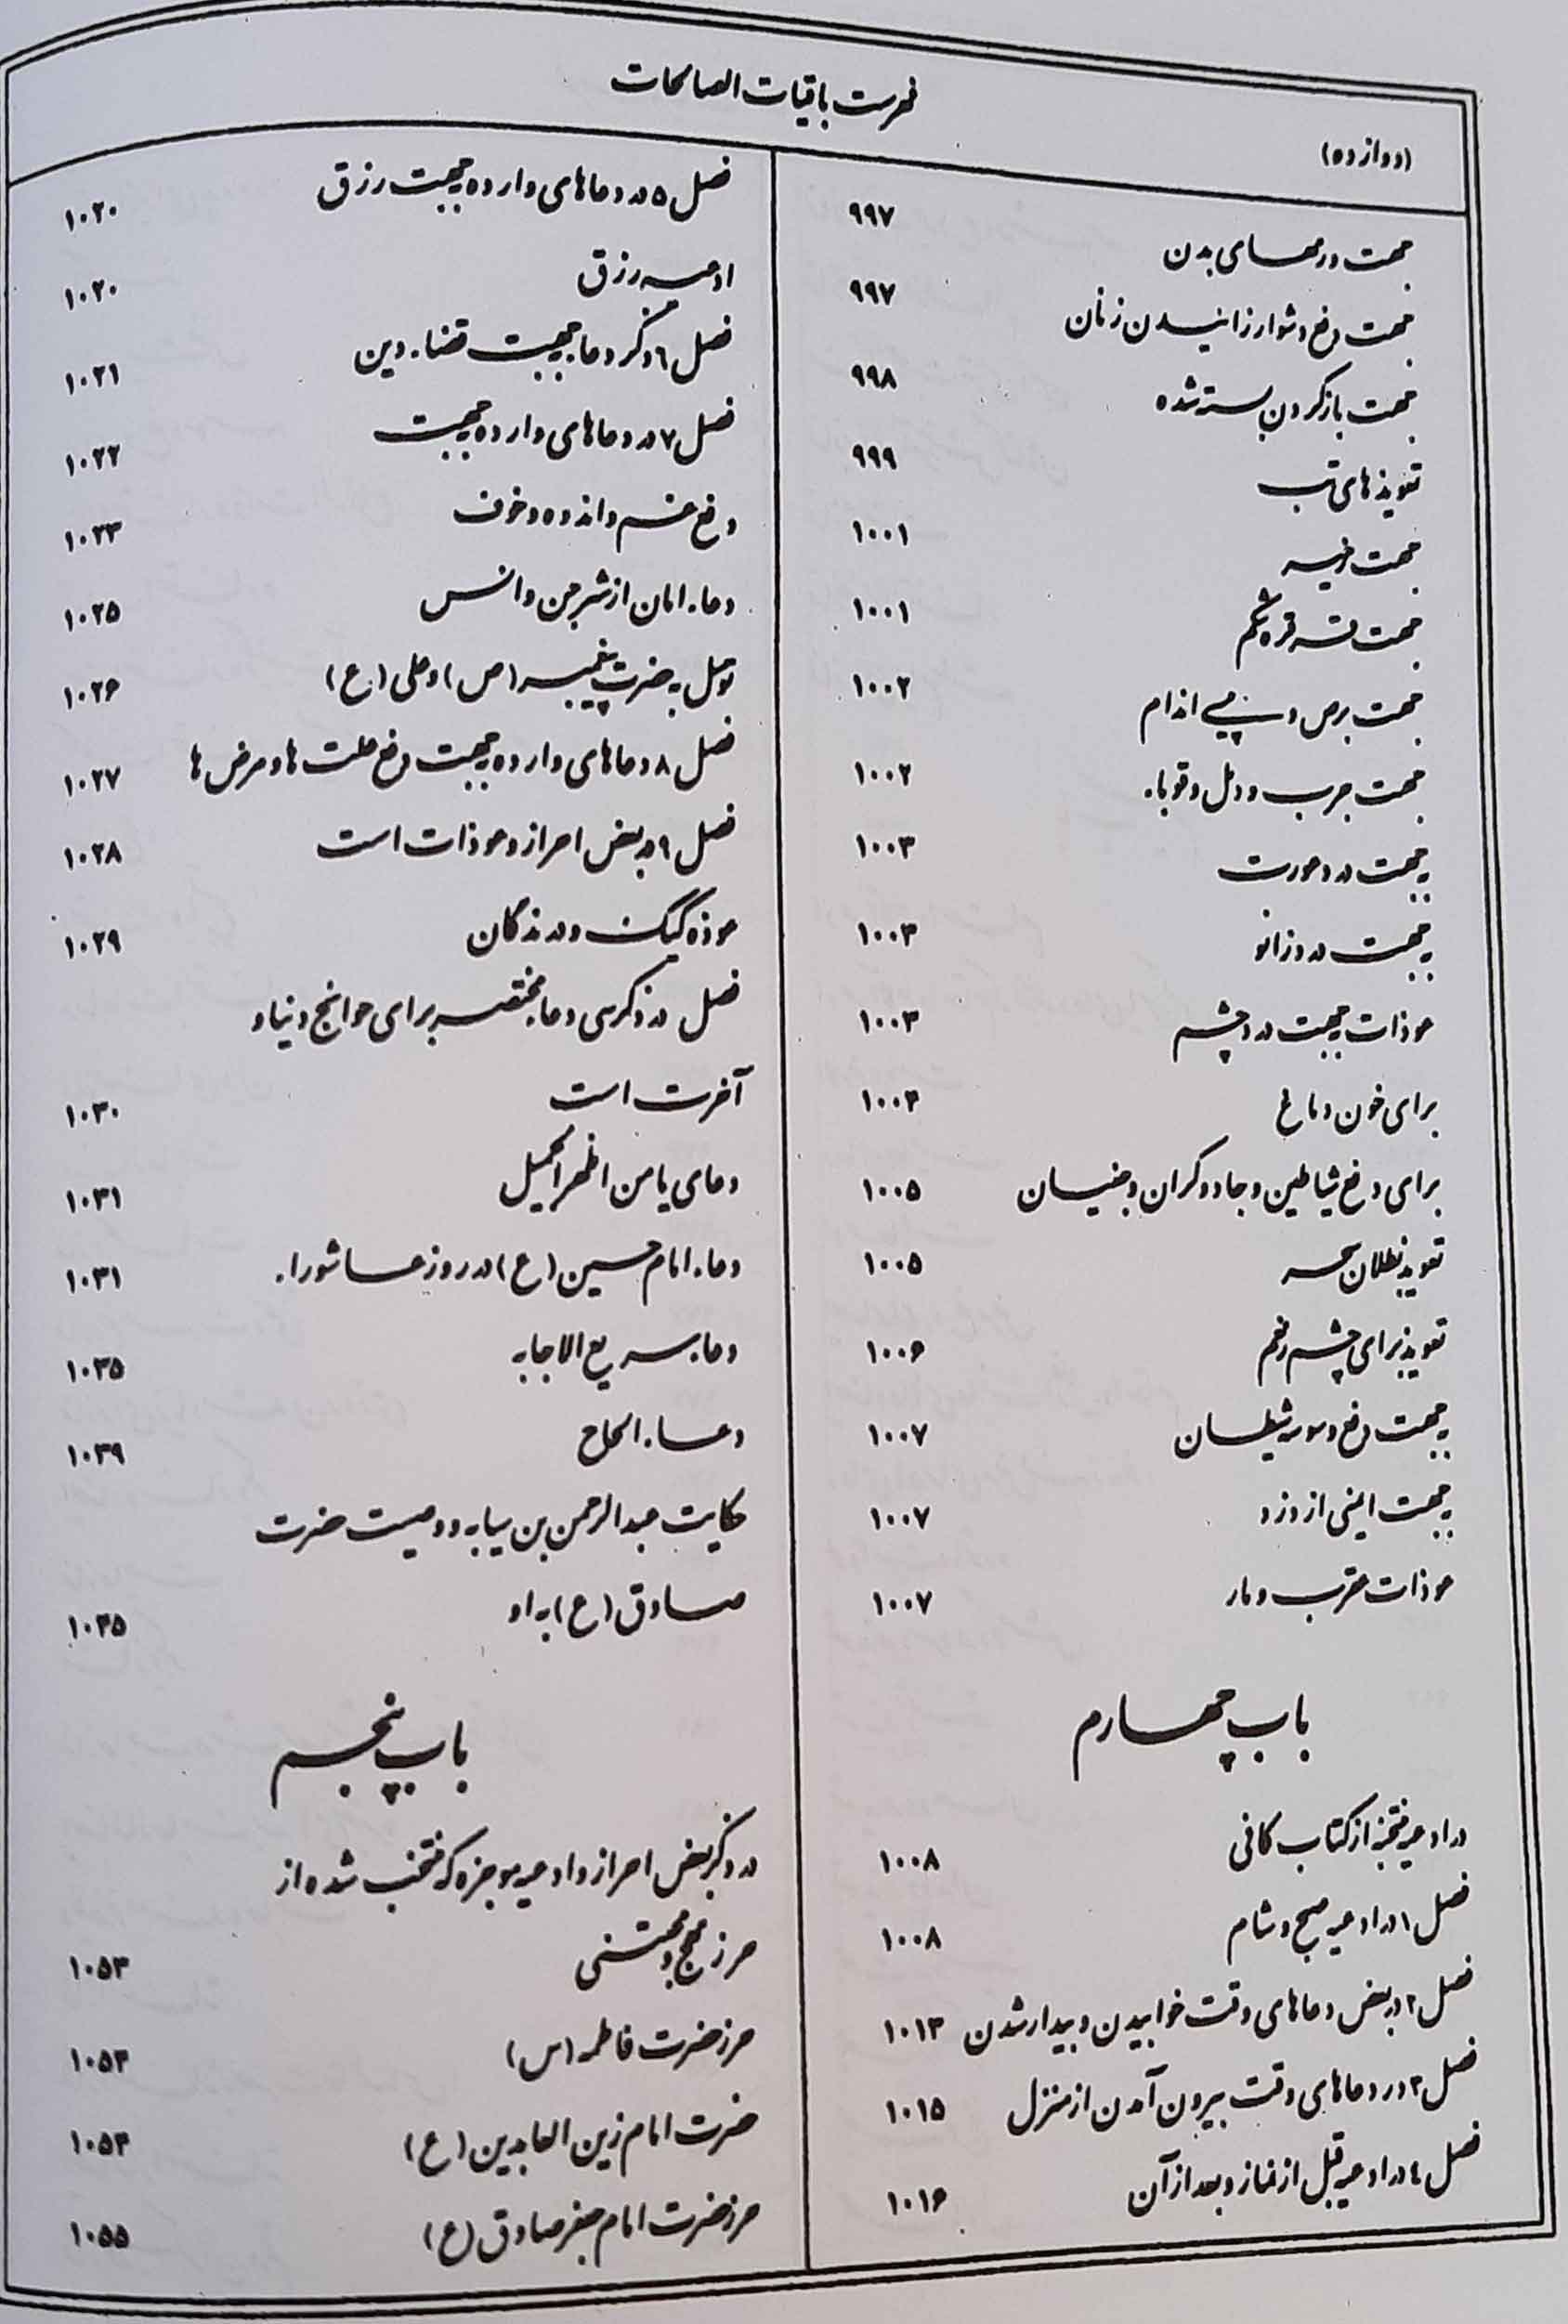 فهرست باقیات الصالحات
(دوازده)
جهت ورمهای بدن ۹۹۷
جهت رفع دشوار زائیدن زنان ۹۹۷
جهت باز کردن بسته شده ۹۹۸
تعویذهای تب ۹۹۹
جهت ۱۰۰۱
جهت قرقره شکم ۱۰۰۱
جهت برص و پیسی اندام ۱۰۰۲
جهت جرب و دمل و قوباء ۱۰۰۲
بجهت درد عورت ۱۰۰۳
بجهت درد زانو ۱۰۰۳
عوذات بجهت درد چشم ۱۰۰۳
برای خون دماغ ۱۰۰۴
برای دفع شیاطین و جادوگران و جنیان ۱۰۰۵
تعویذ بطلان سحر ۱۰۰۵
تعویذ برای چشم زخم ۱۰۰۶
بجهت رفع وسوسه شیطان ۱۰۰۷
بجهت ایمنی از دزد ۱۰۰۷
عوذات عقرب و مار ۱۰۰۷
باب چهارم
در ادعیه منتخبه از کتاب کافی ۱۰۰۸
فصل ۱ در ادعیه صبح و شام ۱۰۰۸
فصل ۲ در بعض دعاهای وقت خوابیدن و بیدار شدن ۱۰۱۳
فصل ۳ در دعاهای وقت بیرون آمدن از منزل ۱۰۱۵
فصل ٤ در ادعیه قبل از نماز و بعد از آن ۱۰۱۶
فصل ۵ در دعاهای وارده بجهت رزق ۱۰۲۰
ادعیه رزق ۱۰۲۰
فصل ٦ ذکر دعا بجهت قضاء دین ۱۰۲۱
فصل ۷ در دعاهای وارده بجهت ۱۰۲۲
رفع غم و اندوه و خوف ۱۰۲۳
دعاء امان از شر جن و انس ۱۰۲۵
توسل به حضرت پیغمبر (ص) و علی (ع) ۱۰۲۶
فصل ۸ دعاهای وارده بجهت رفع علت ها و مرض ها ۱۰۲۷
فصل ۹ در بعض احراز و عوذات است ۱۰۲۸
عوذه کیک و درندگان ۱۰۲۹
فصل در ذکر سی دعا مختصر برای حوائج دنیا و
آخرت است ۱۰۳۰
دعای یا من اظهر الجمیل ۱۰۳۱
دعاء امام حسین (ع) در روز عاشوراء ۱۰۳۱
دعاء سریع الاجابه ۱۰۳۵
دعاء الحاح ۱۰۳۹
حکایت عبدالرحمن بن سیابه و وصیت حضرت
صادق (ع) به او ۱۰۴۵
باب پنجم
در ذکر بعض احراز و ادعیه موجزه که منتخب شده از
حرز مهج و مجتنی ۱۰۵۳
حرز حضرت فاطمه (س) ۱۰۵۴
حضرت امام زین العابدین (ع) ۱۰۵۴
حرز حضرت امام جعفر صادق (ع) ۱۰۵۵